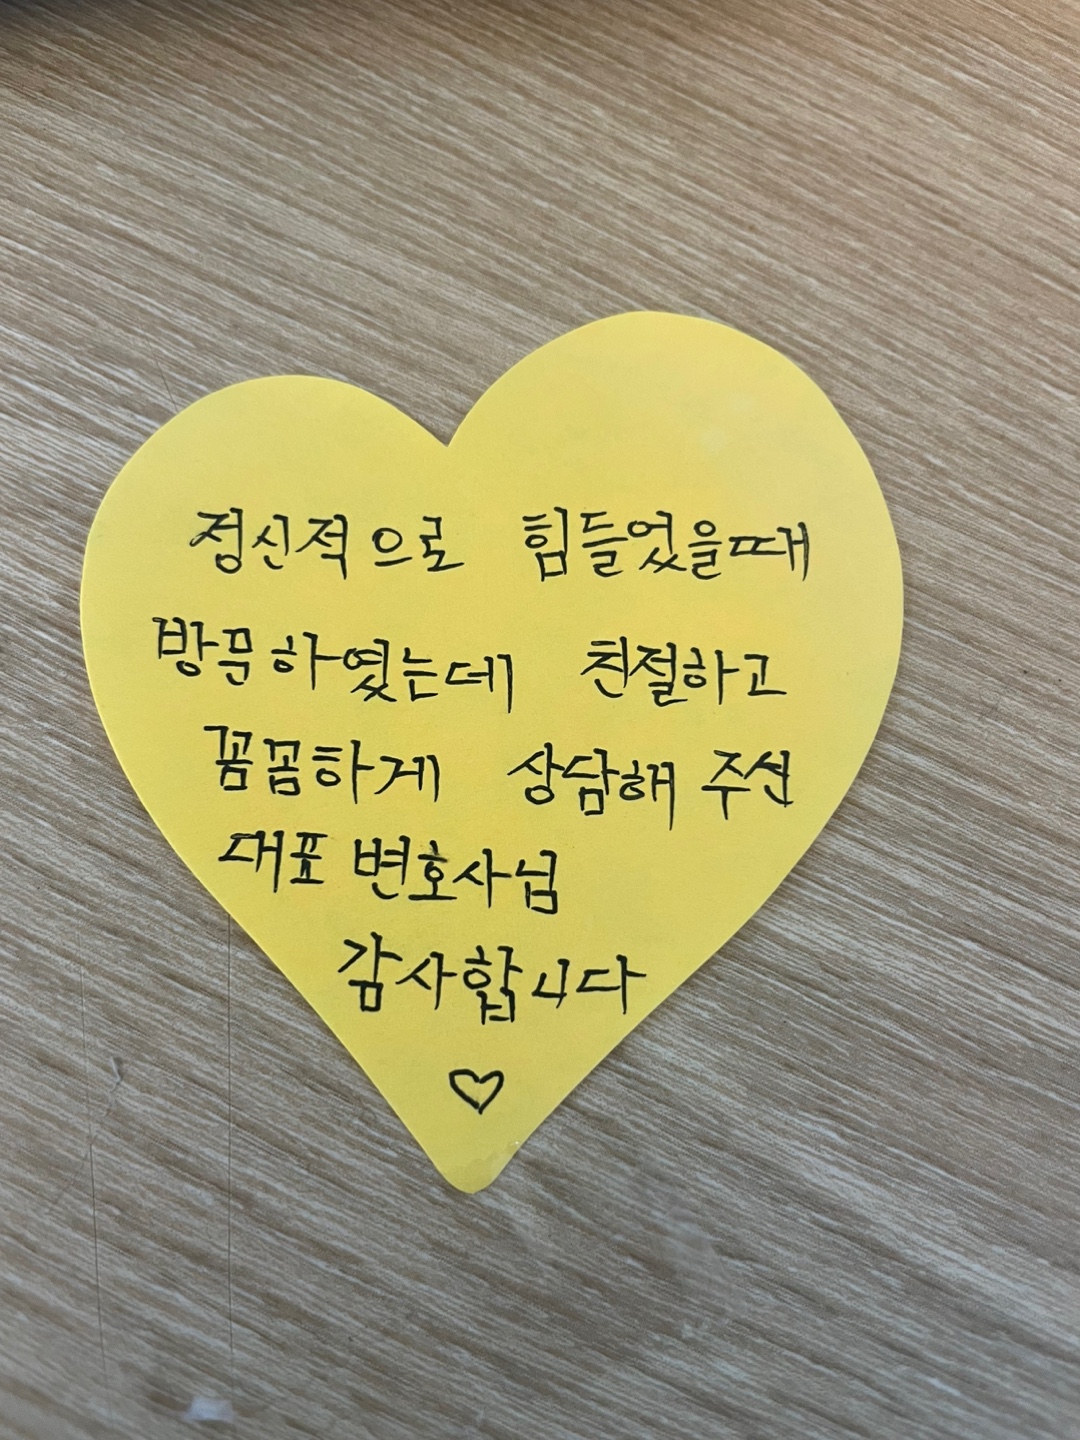 정신적으로 힘들었을때
방문하였는데 친절하고
꼼꼼하게 상담해 주신
대표 변호사님
감사합니다
♡